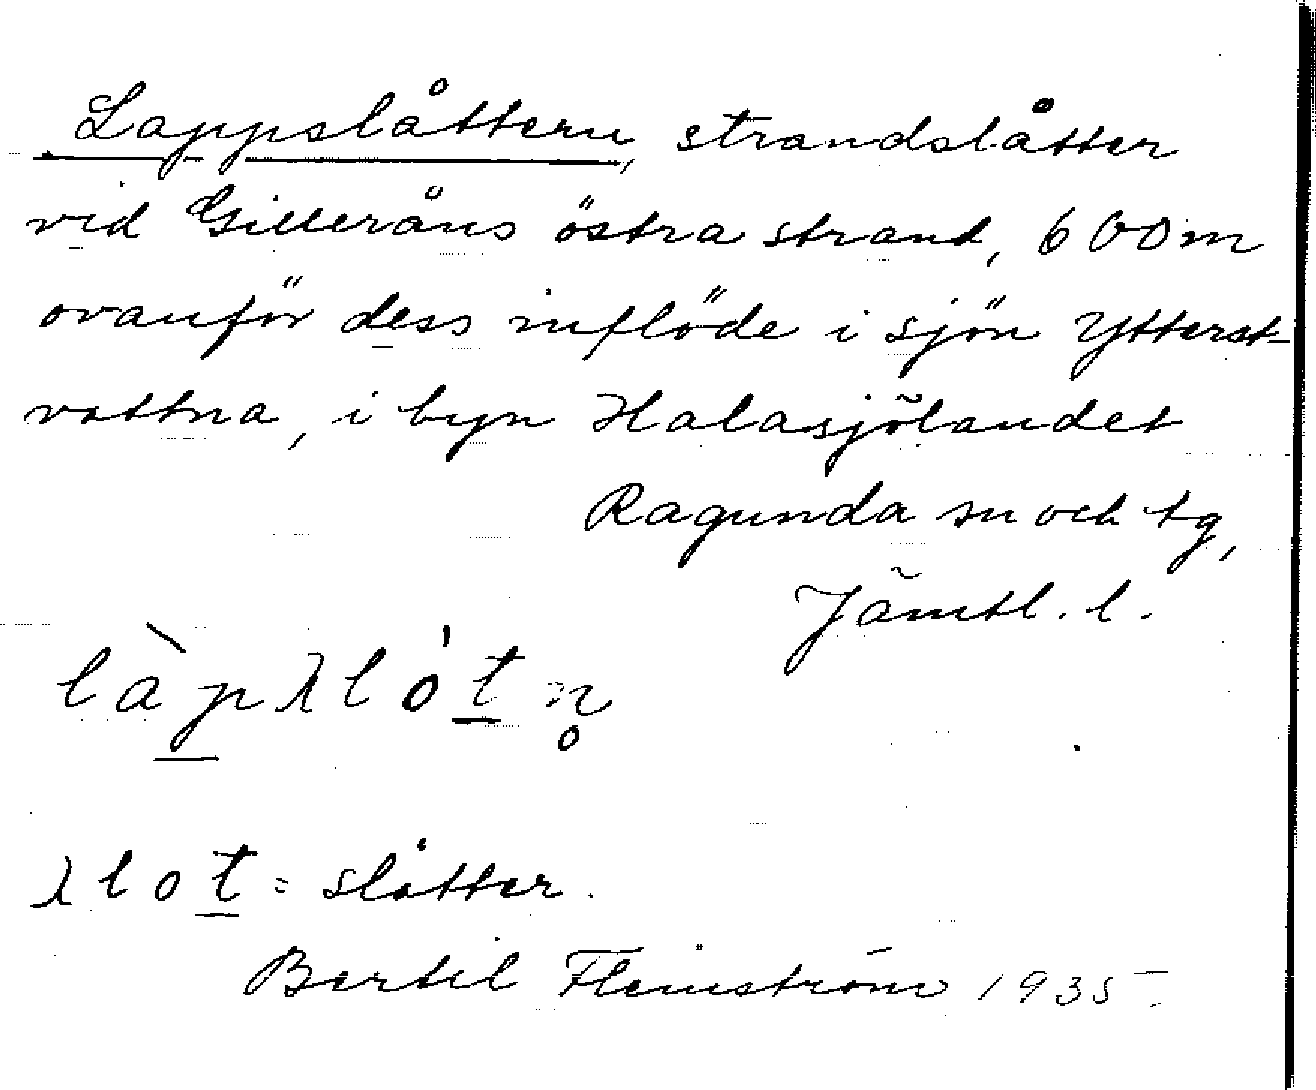 Lappslåttern, strandslåtter
vid Gilleråns östra strand, 600 m
ovanför dess inflöde i sjön Ytterst-
vattna, i byn Halasjölandet
Ragunda sn och tg,
Jämtl. l.
làpλlót n̥
λlot = slåtter.
Bertil Flemström 1935